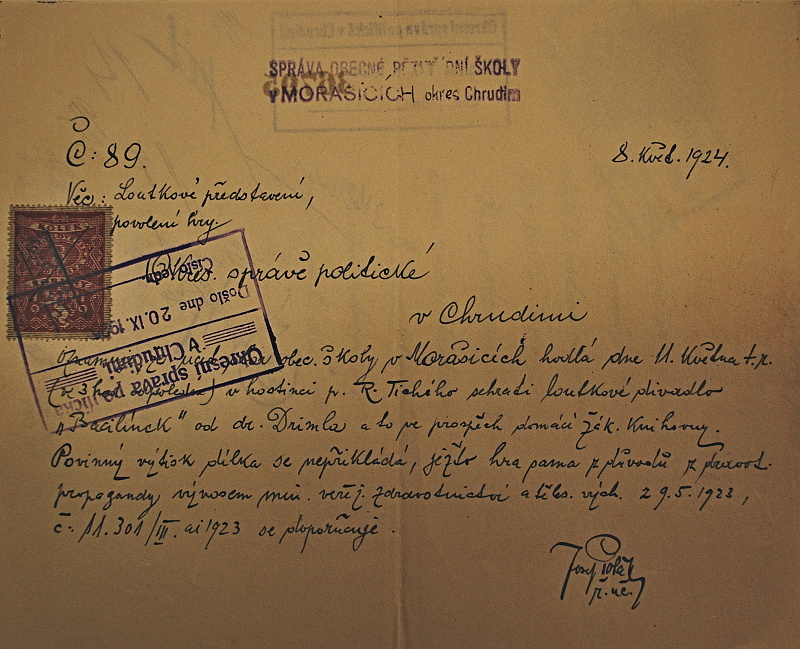 SPRÁVA OBECNÉ PĚTITŘÍDNÍ ŠKOLY
v MORAŠICÍCH okres Chrudim
Č: 89.
8. Květ. 1924.
Věc: Loutkové představení,
povolení hry.
KOLEK
Okres. správě politické
v Chrudimi
Okresní správa politická
v Chrudimi
Došlo dne 20. IX. 19
Číslo jedn.
obec. školy v Morašicích hodlá dne 11. Května t. r.
v hostinci p. R. Tichého sehrati loutkové divadlo
„Bacilínek" od dr. Drimla a to ve prospěch domácí žák. knihovny.
Povinný výtisk dílka se nepřikládá, ježto hra sama z důvodů zdravot.
propagandy výnosem min. veřej. zdravotnictví a těles. vých. z 9.5.1923,
č: 11.301/III. ai 1923 se doporučuje.
Josef Polák
ř. uč.